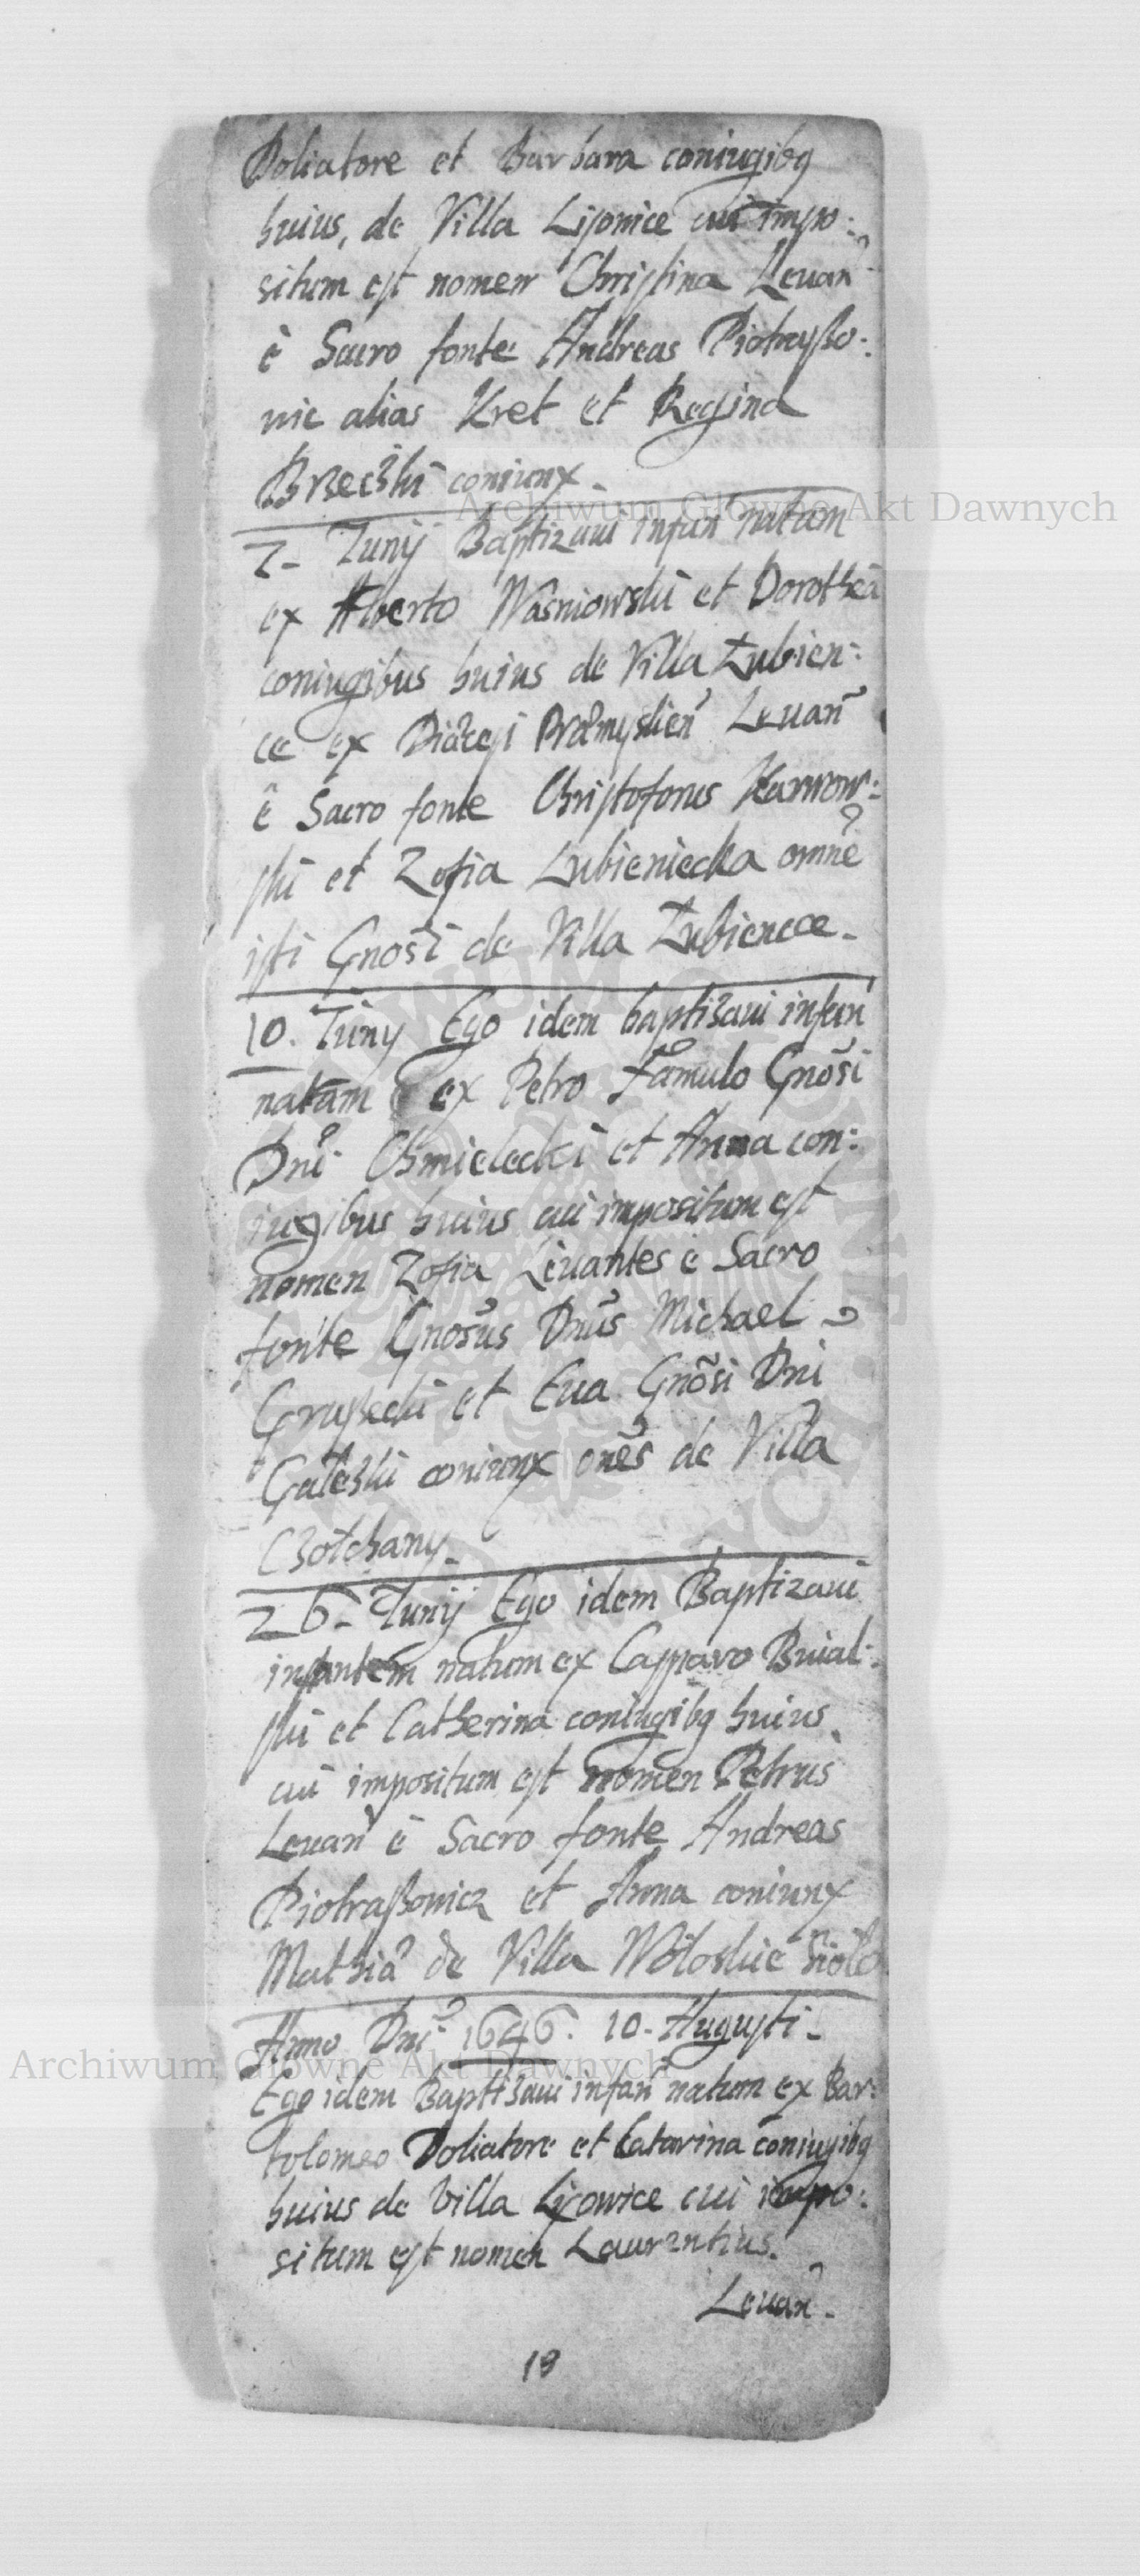 Doliatore et Barbara coniugibq
huius, de Villa Lisowice cui impo:
situm est nomen Christina Levan̄
è Sacro fonte Andreas Piotraßo:
vic alias Kret et Regina
Brzeczki coniunx.
7 - Junij Baptizaui infan̄ natam
ex Alberto Wasniowski et Dorothea
coniugibus huius de Villa Łubien:
ce ex Diæcesi Præmyslien̄ Levan̄
ê Sacro fonte Christoforus Karwow:
ski et Zofia Lubieniecka omnē
isti Gnosī de Villa Łubiencæ.
10. Juny Ego idem baptizaui infan̄
natam ex Petro Famulo Gnōsi
Dni Chmielecki et Anna con:
iugibus huius cui impositum est
nomen Zofia Levantes è Sacro
fonte Gnosūs Dnūs Michael
Grusecki et Eva Gnōsi Dni
Gałeski coniunx onēs de Villa
Czołchany.
26 - Junij Ego idem Baptizaui
infantem natum ex Casparo Buial:
ski et Catherina coniugibq huius
cui impositum est nomen Petrus
Levan̄ è Sacro fonte Andreas
Piotraßowicz et Anna coniunx
Mathiæ de Villa Wołoskie Sioło
Anno Dni 1646. 10. Augusti.
Ego idem Baptizaui infan̄ natum ex Bar:
tolomeo Doliatore et Catarina coniugibq
huius de Villa Lisowice cui impo:
situm est nomen Laurentius.
Levan̄.
19
Archiwum Główne Akt Dawnych
Archiwum Główne Akt Dawnych